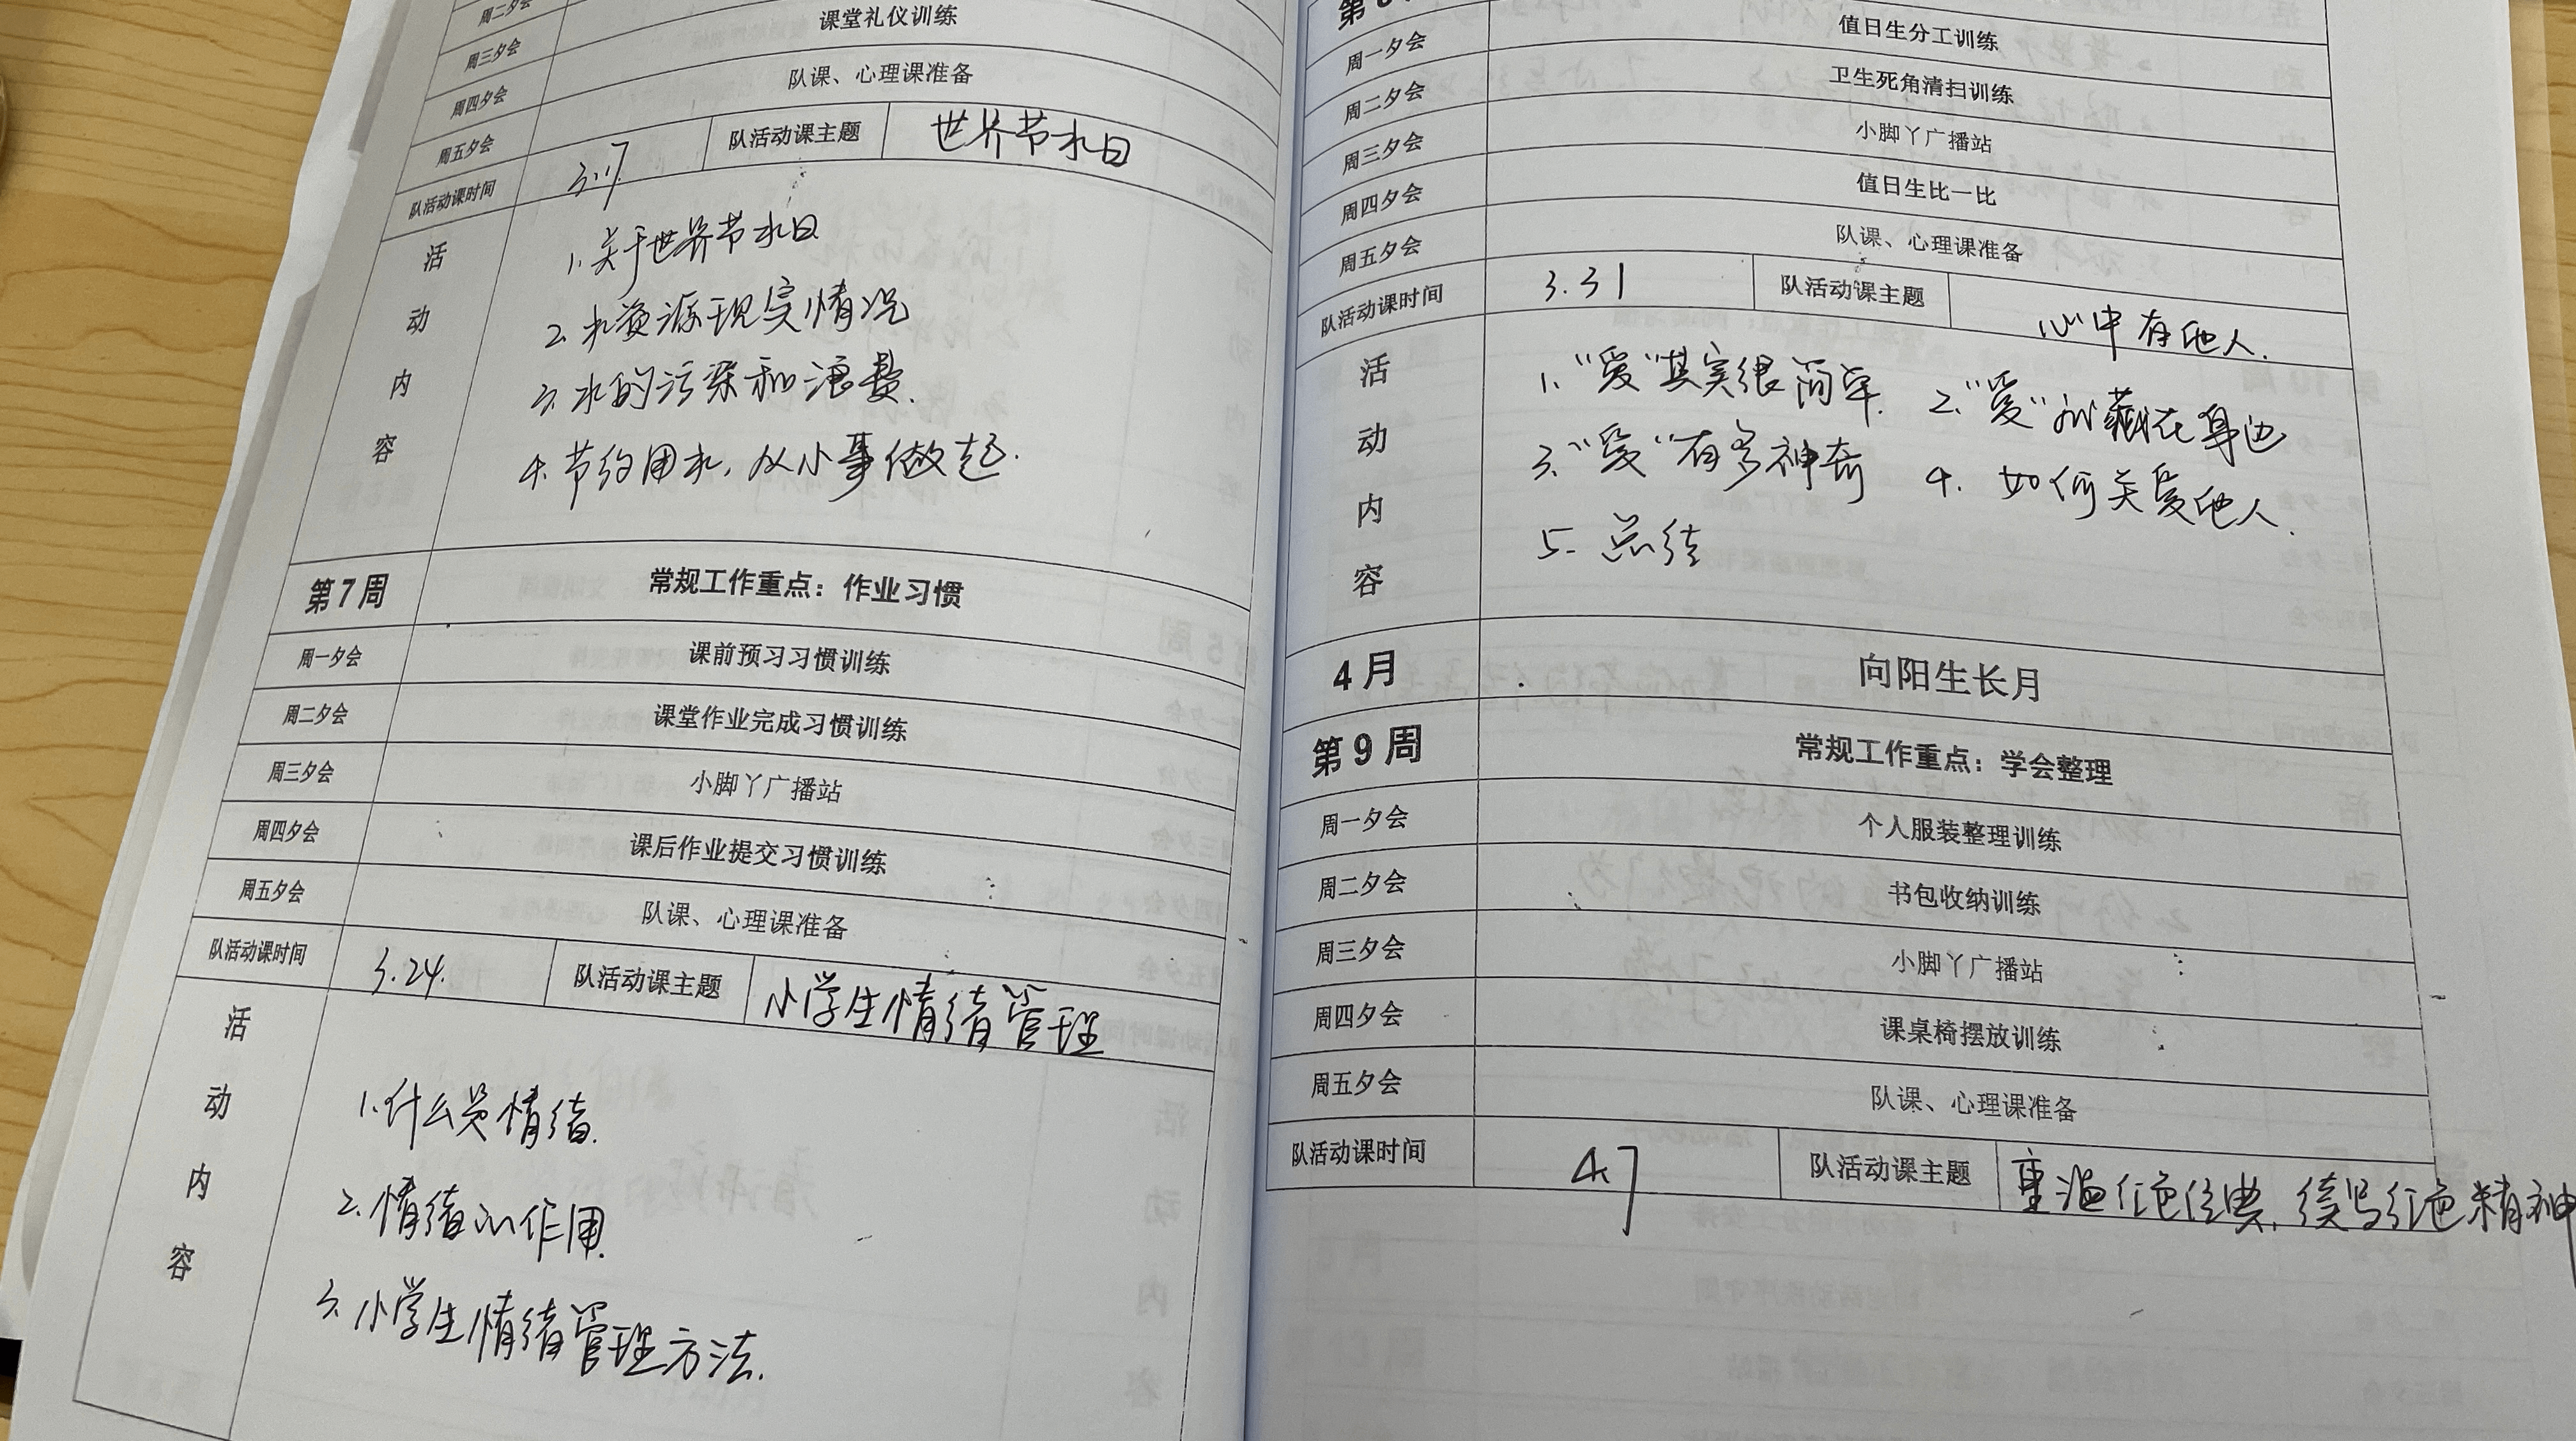 周二夕会
周三夕会 课堂礼仪训练
周四夕会 队课、心理课准备
周五夕会
队活动课时间 3.17 队活动课主题 世界节水日
活动内容
1.关于世界节水日
2.水资源现实情况
3.水的污染和浪费.
4.节约用水,从小事做起.
第7周 常规工作重点：作业习惯
周一夕会 课前预习习惯训练
周二夕会 课堂作业完成习惯训练
周三夕会 小脚丫广播站
周四夕会 课后作业提交习惯训练
周五夕会 队课、心理课准备
队活动课时间 3.24. 队活动课主题 小学生情绪管理
活动内容
1.什么是情绪.
2.情绪的作用.
3.小学生情绪管理方法.
周一夕会 值日生分工训练
周二夕会 卫生死角清扫训练
周三夕会 小脚丫广播站
周四夕会 值日生比一比
周五夕会 队课、心理课准备
队活动课时间 3.31 队活动课主题 心中有他人.
活动内容
1.“爱”其实很简单. 2.“爱”就藏在身边
3.“爱”有多神奇 4.如何关爱他人.
5.总结
4月 向阳生长月
第9周 常规工作重点：学会整理
周一夕会 个人服装整理训练
周二夕会 书包收纳训练
周三夕会 小脚丫广播站
周四夕会 课桌椅摆放训练
周五夕会 队课、心理课准备
队活动课时间 4.7 队活动课主题 重温红色经典,续写红色精神